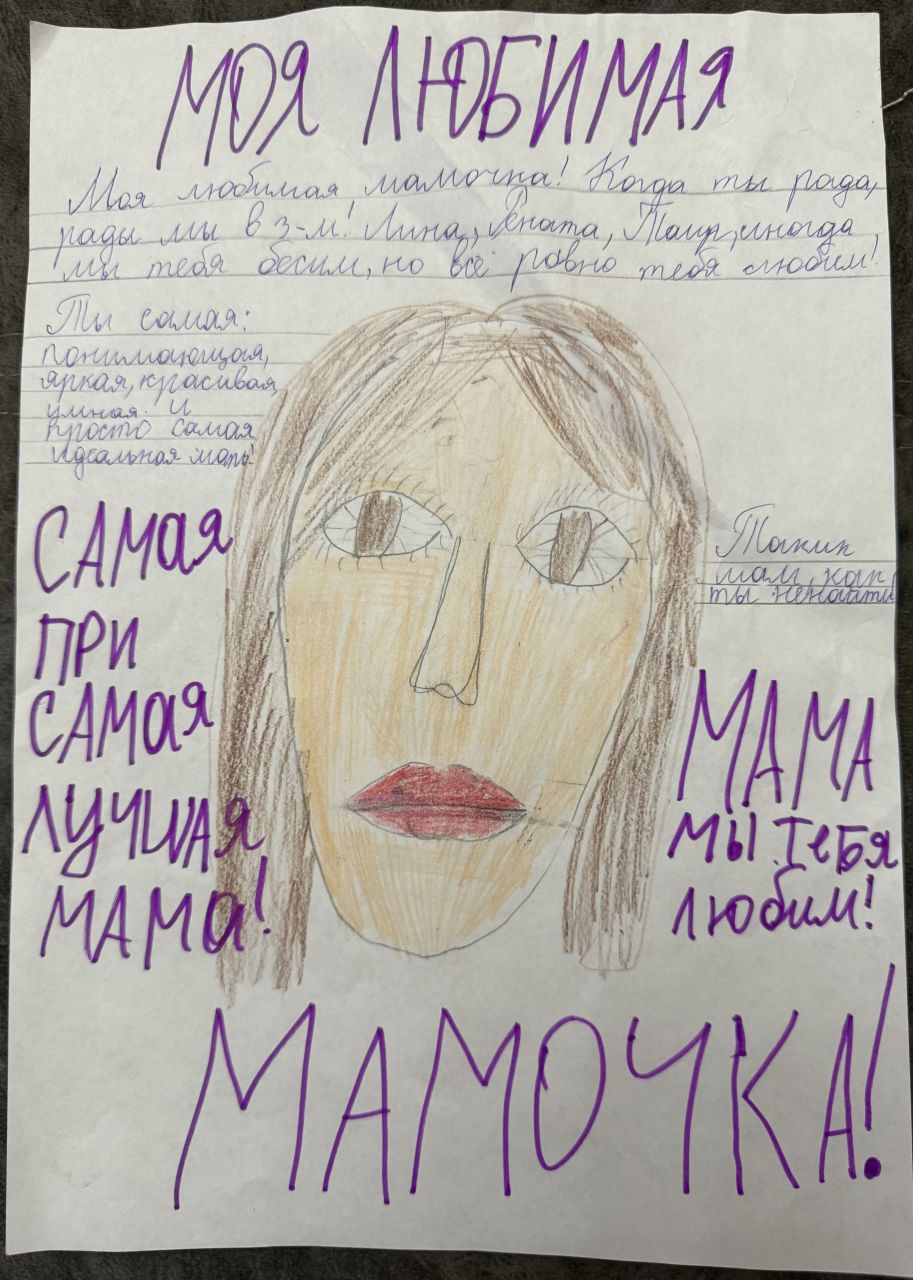 МОЯ ЛЮБИМАЯ
Моя любимая мамочка! Когда ты рада,
рады мы в 3-м! Лина, Рената, Таир, иногда
мы тебя бесим, но всё ровно тебя любим!
Ты самая:
понимающая,
яркая, красивая,
умная. И
просто самая
идеальная мать!
САМАЯ
ПРИ
САМАЯ
ЛУЧШАЯ
МАМА!
Таких
мам, как
ты ненайти
МАМА
МЫ ТЕБЯ
ЛЮБИМ!
МАМОЧКА!